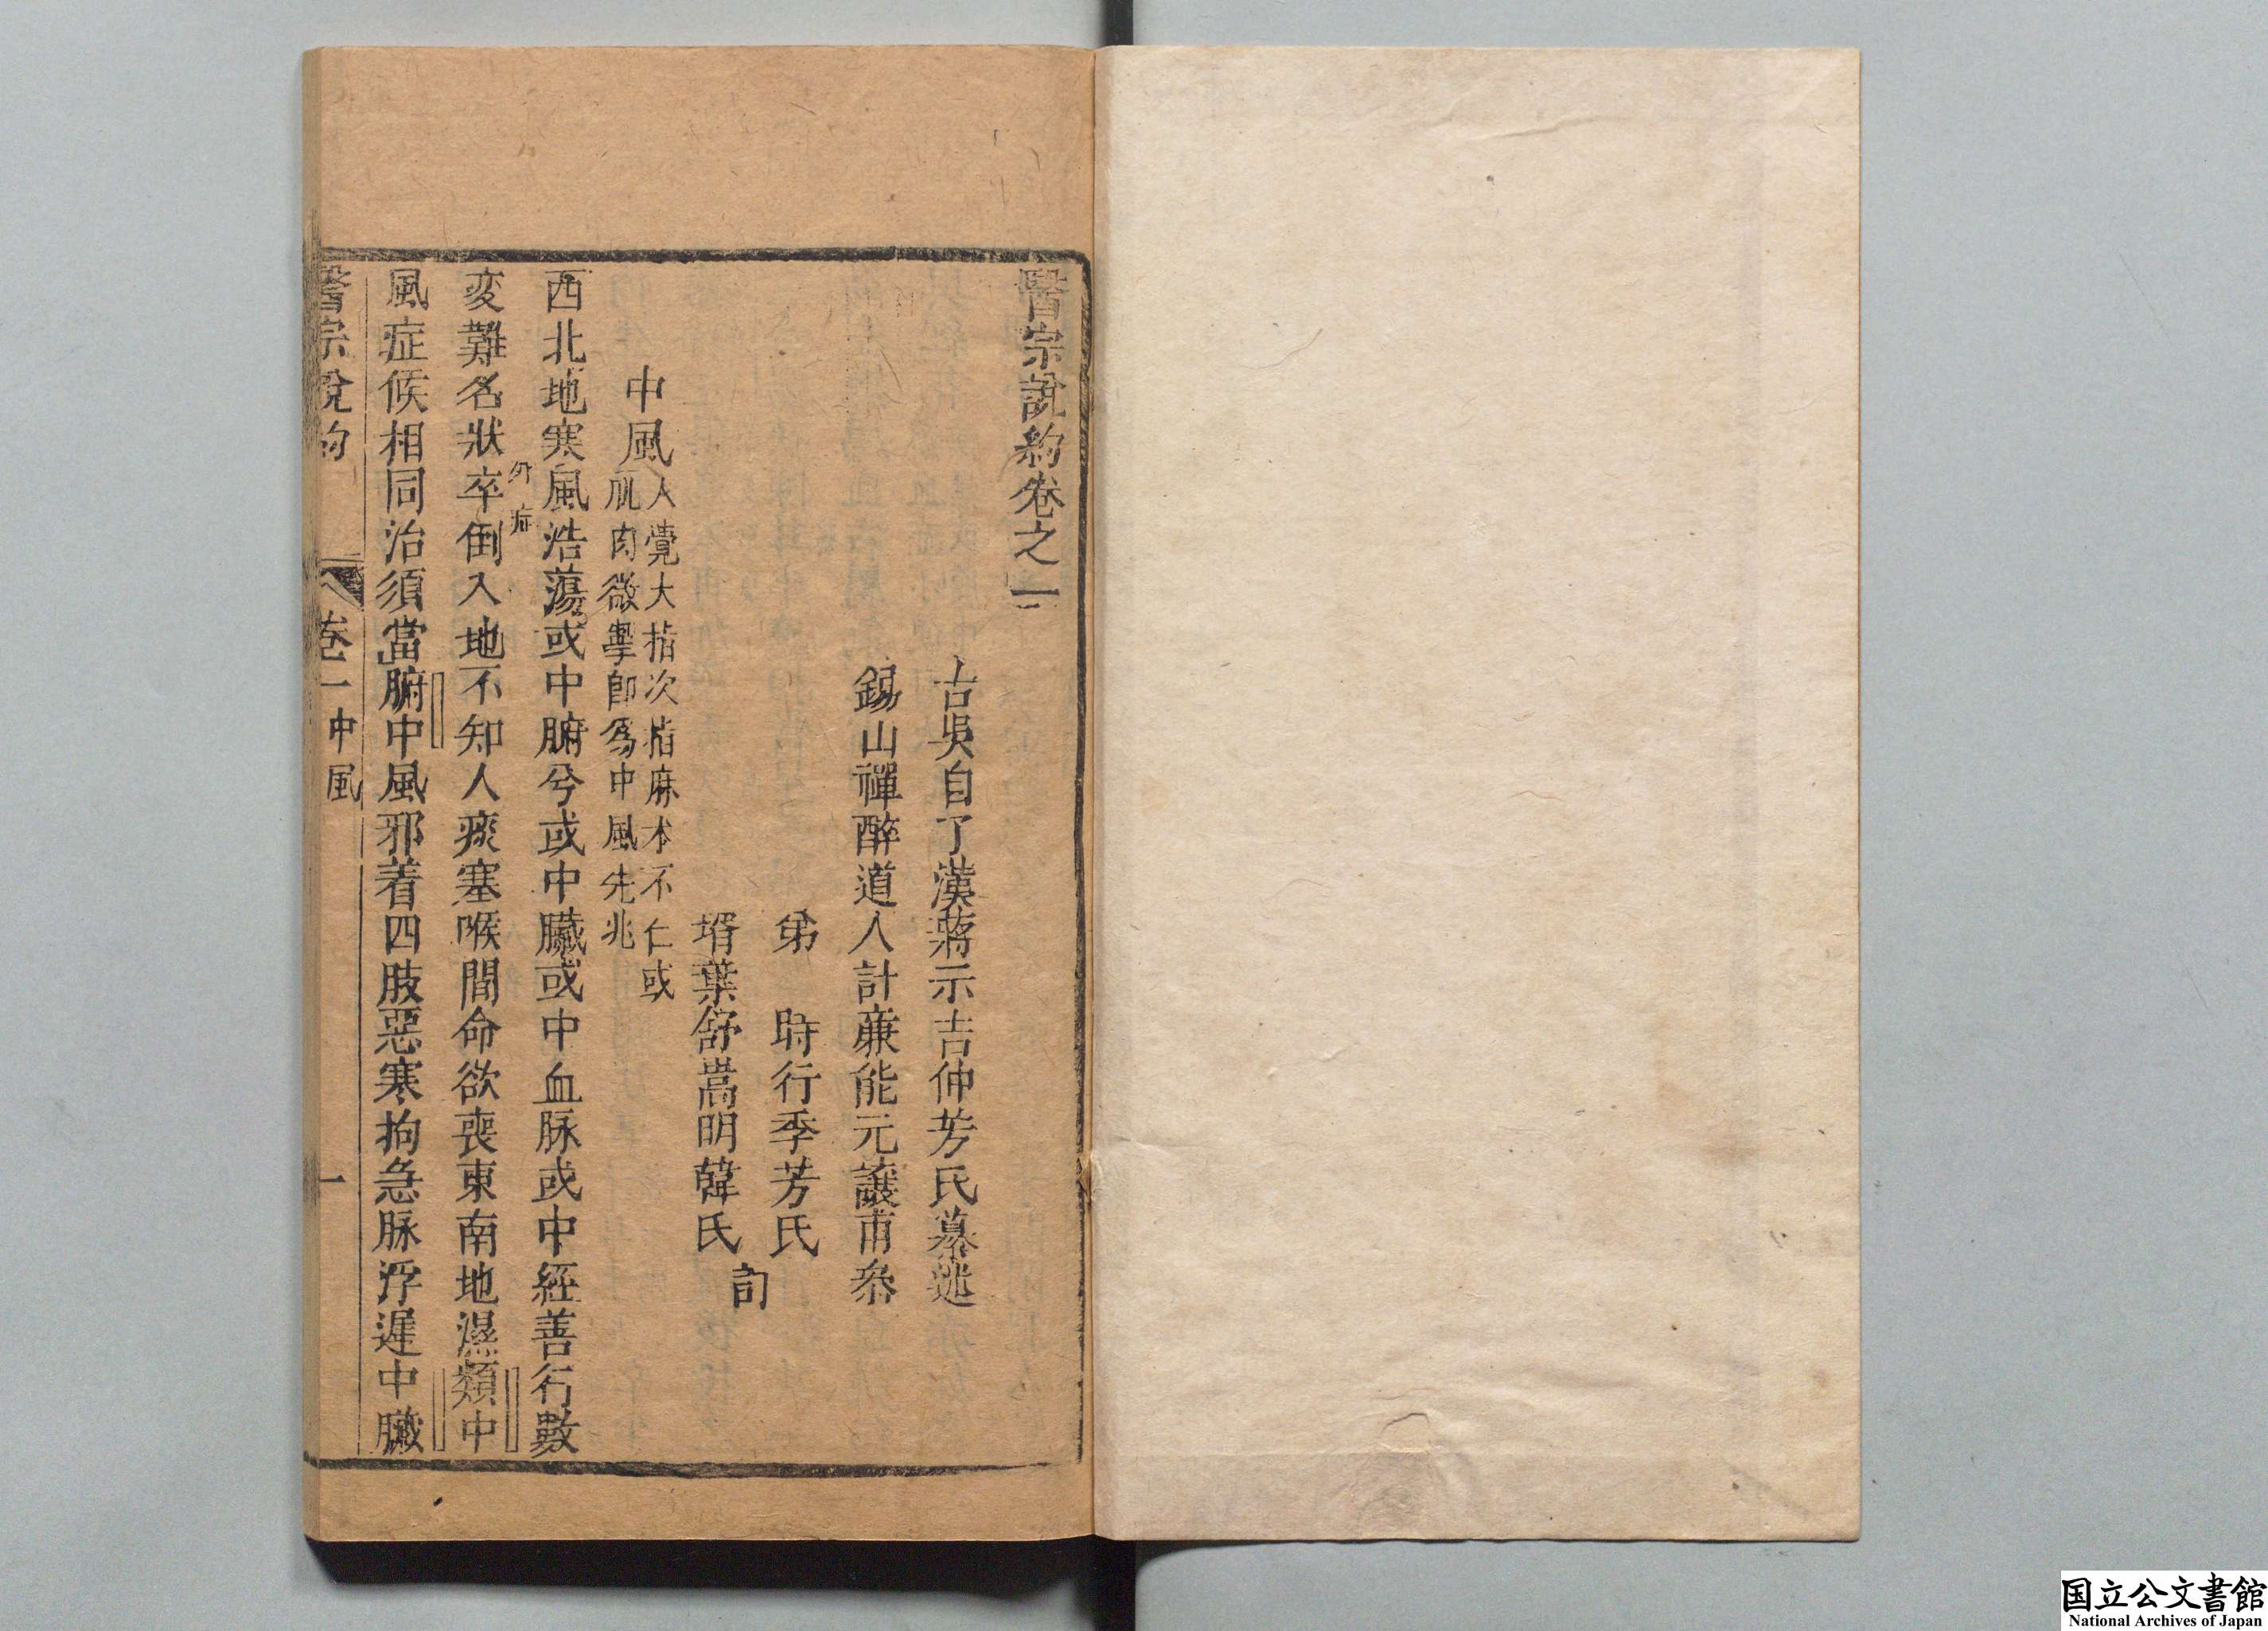 醫宗説約卷之一
古吳自了漢蔣示吉仲芳氏纂述
錫山禪醉道人計廉能元讓甫叅
弟　時行季芳氏
壻葉舒嵩明韓氏
訂
中風
人覺大指次指麻木不仁或
肌肉微掣即爲中風先兆
西北地寒風浩蕩或中腑兮或中臟或中血脉或中經善行數
外症
変難名狀卒倒入地不知人痰塞喉間命欲喪東南地濕類中
風症候相同治須當腑中風邪着四肢惡寒拘急脉浮遲中臟
醫宗説約
卷一
中風
一
国立公文書館
National Archives of Japan